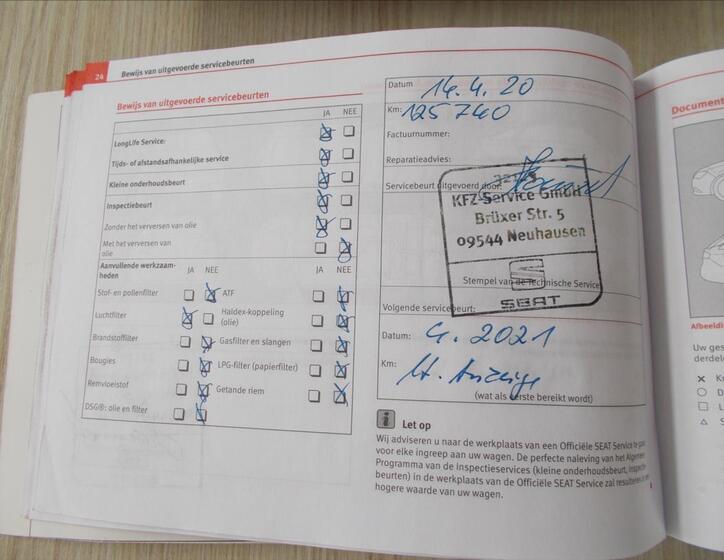 24 Bewijs van uitgevoerde servicebeurten
Bewijs van uitgevoerde servicebeurten
JA NEE
LongLife Service:
Tijds- of afstandsafhankelijke service
Kleine onderhoudsbeurt
Inspectiebeurt
Zonder het verversen van olie
Met het verversen van
olie
Aanvullende werkzaam-
heden
JA NEE JA NEE
Stof- en pollenfilter ATF
Luchtfilter Haldex-koppeling
(olie)
Brandstoffilter Gasfilter en slangen
Bougies LPG-filter (papierfilter)
Remvloeistof Getande riem
DSG®: olie en filter
Datum 14.4.20
Km: 125740
Factuurnummer:
Reparatieadvies:
Servicebeurt uitgevoerd door:
KFZ-Service GmbH
Brüxer Str. 5
09544 Neuhausen
Stempel van de Technische Service
SEAT
Volgende servicebeurt:
Datum: 4.2021
Km: lt. Anzeige
(wat als eerste bereikt wordt)
i Let op
Wij adviseren u naar de werkplaats van een Officiële SEAT Service te gaan
voor elke ingreep aan uw wagen. De perfecte naleving van het Algemeen
Programma van de Inspectieservices (kleine onderhoudsbeurt, inspectie-
beurten) in de werkplaats van de Officiële SEAT Service zal resulteren in een
hogere waarde van uw wagen.
Document
Afbeeldi
Uw ges
derdele
K
D
L
S